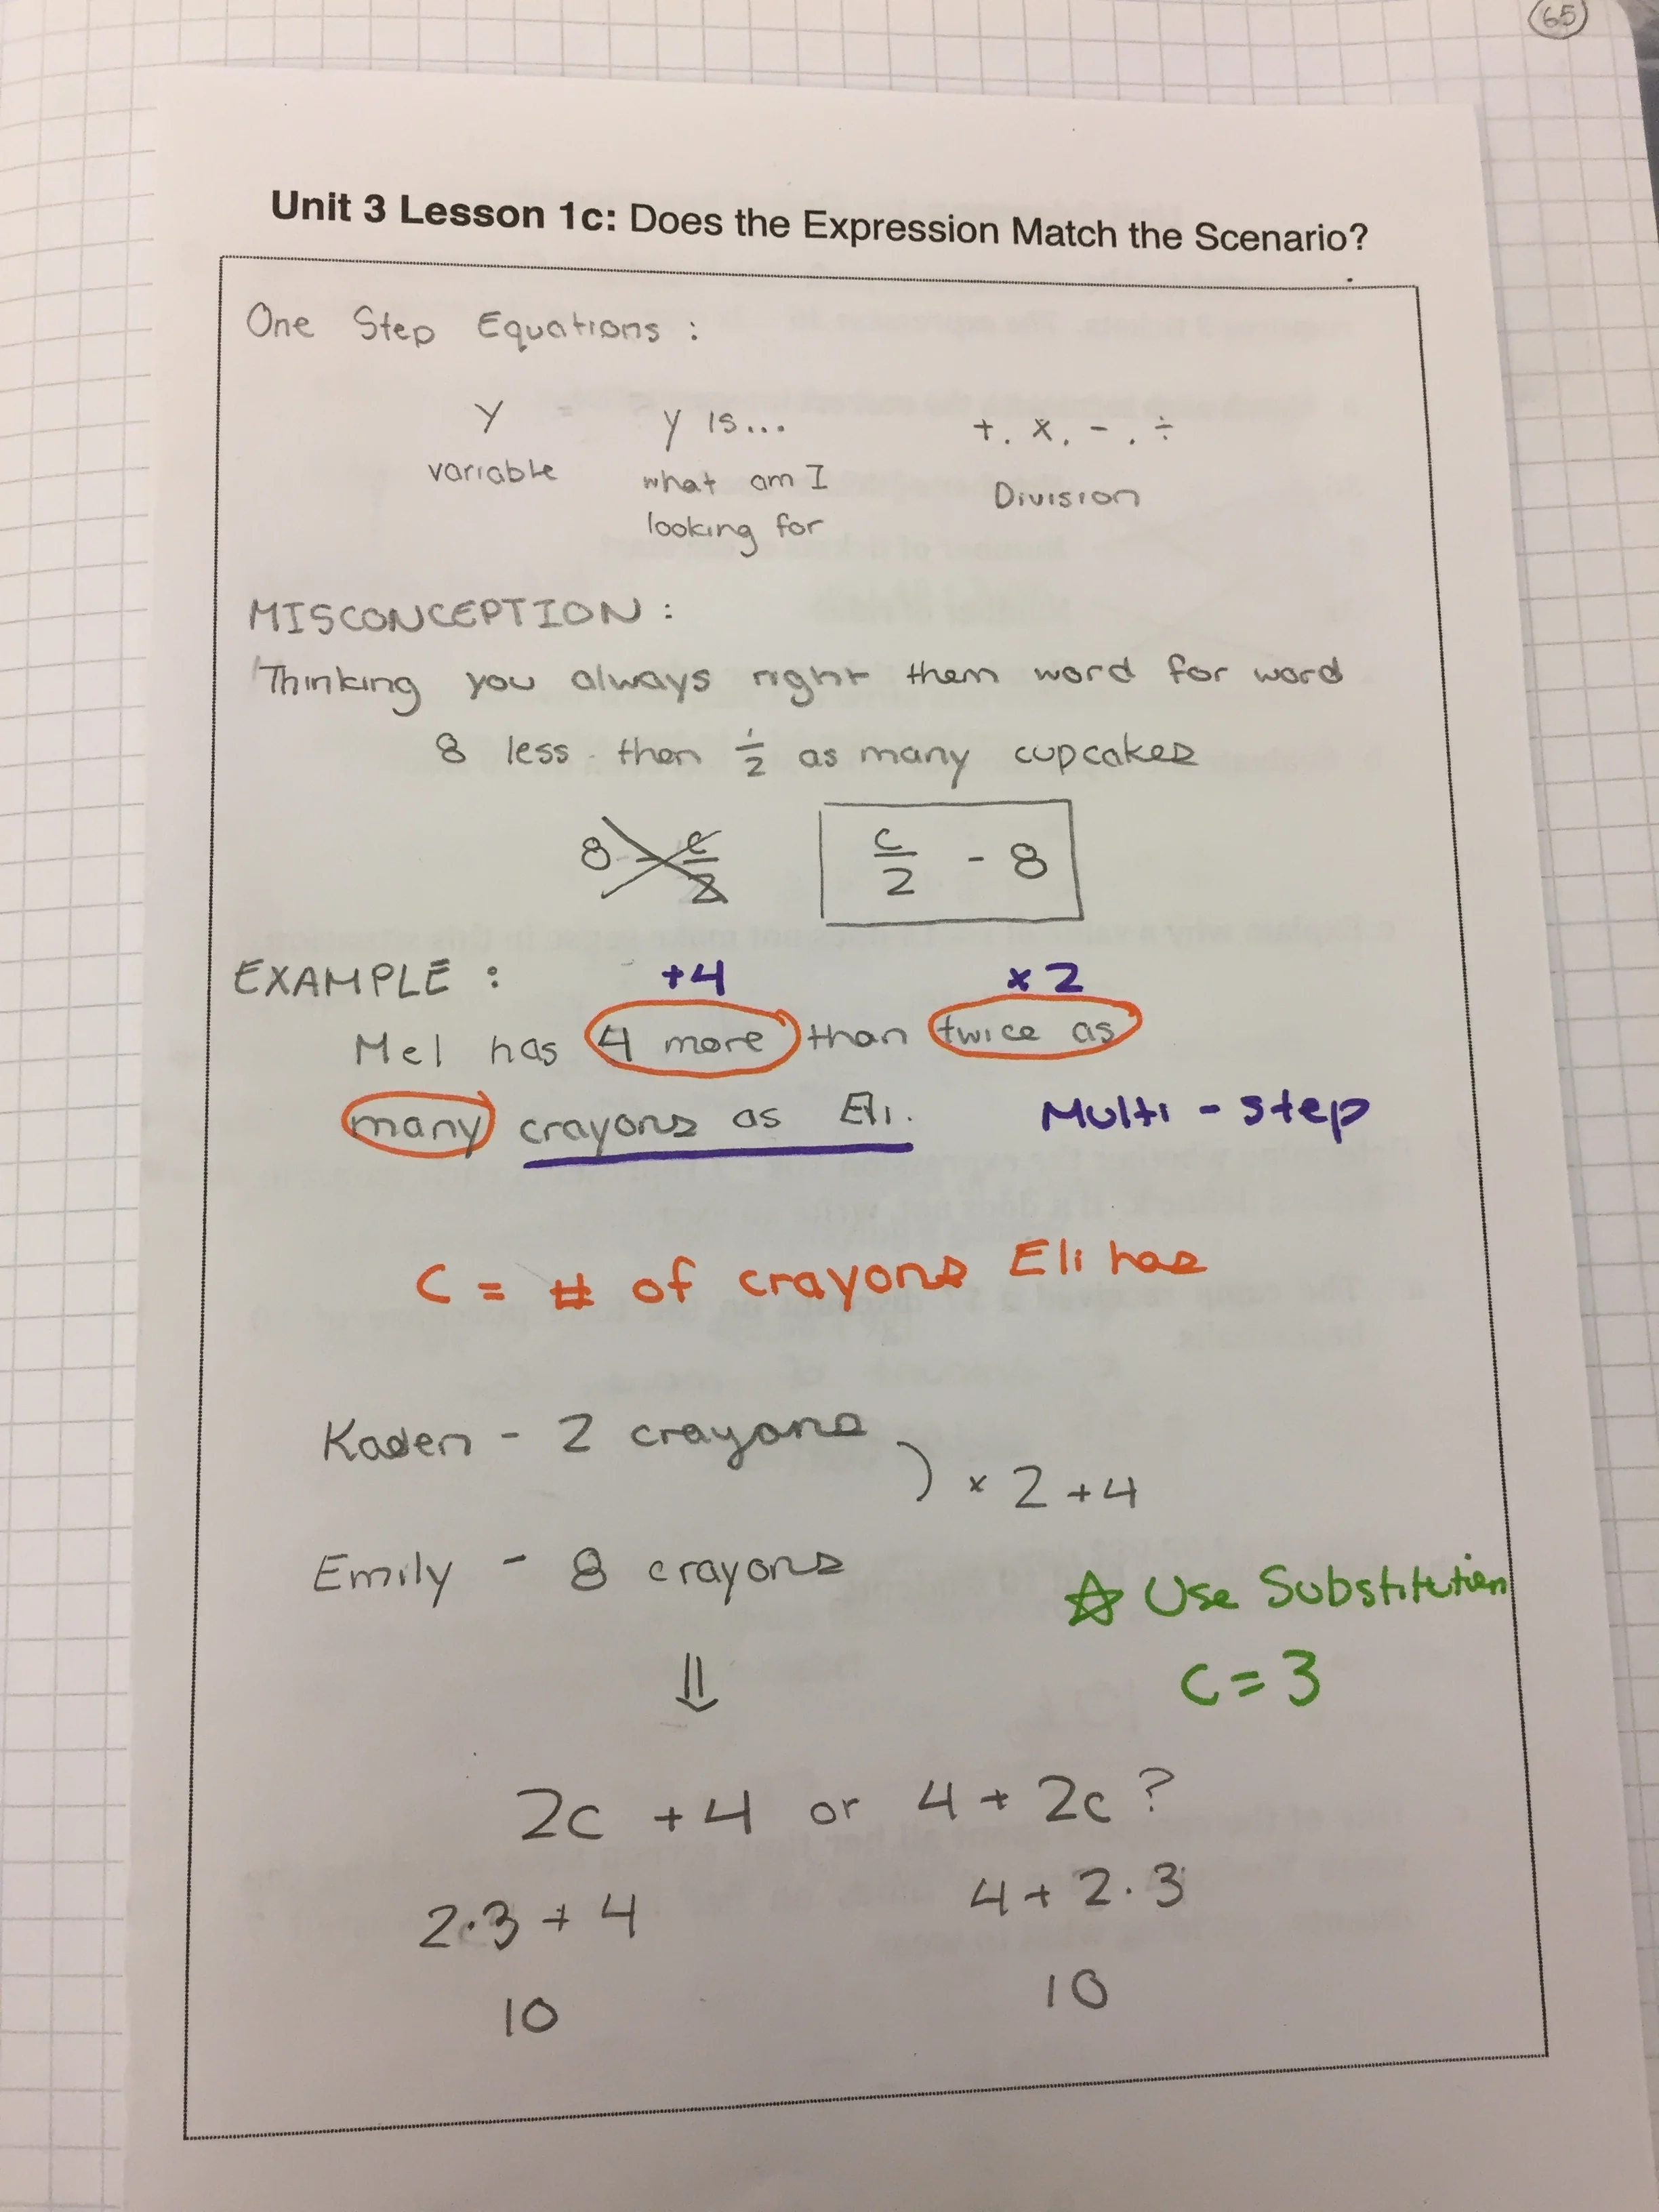 65
Unit 3 Lesson 1c: Does the Expression Match the Scenario?
One Step Equations :
y y is... +, x, -, ÷
variable what am I Division
looking for
MISCONCEPTION :
Thinking you always right them word for word
8 less than 1/2 as many cupcakes
8 - c/2 c/2 - 8
EXAMPLE : +4 x 2
Mel has 4 more than twice as
many crayons as Eli. Multi-step
C = # of crayons Eli has
Kaden - 2 crayons
) x 2 + 4
Emily - 8 crayons
☆ Use Substitution
⇓ C = 3
2c + 4 or 4 + 2c ?
2·3 + 4 4 + 2·3
10 10